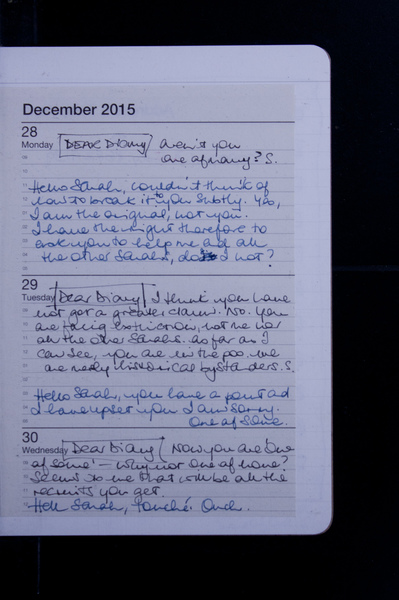 December 2015
28
Monday DEAR Diary aren't you
one of many? S.
Hello Sarah, couldn't think of
how to break it to you subtly. Yes,
I am the original, not you.
I have the right therefore to
ask you to help me and all
the other Sarahs, do I not?
29
Tuesday Dear Diary I think you have
not got a greater claim. No. You
are facing extinction, not me nor
all the other Sarahs. As far as I
can see, you are in the poo. We
are merely historical bystanders. S.
Hello Sarah, you have a point and
I have upset you. I am sorry.
One of Some.
30
Wednesday Dear Diary Now you are 'One
of some' – why not one of none?
Seems to me that will be all the
recruits you get.
Hello Sarah, touché. Ouch.